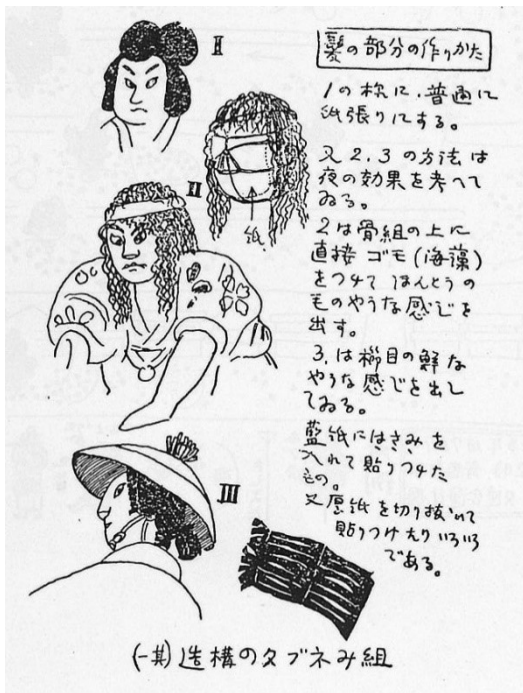 髪の部分の作りかた
1の様に、普通に
紙張りにする。
又2.3の方法は
夜の効果を考へて
ゐる。
2は骨組の上に
直接ゴモ(海藻)
をつけてほんとうの
毛のやうな感じを
出す。
3.は櫛目の鮮な
やうな感じを出し
てゐる。
藍紙にはさみを
入れて貼りつけた
もの。
又厚紙を切り抜いて
貼りつけたりいろいろ
である。
II
紙
II
III
組みネブタの構造(其一)